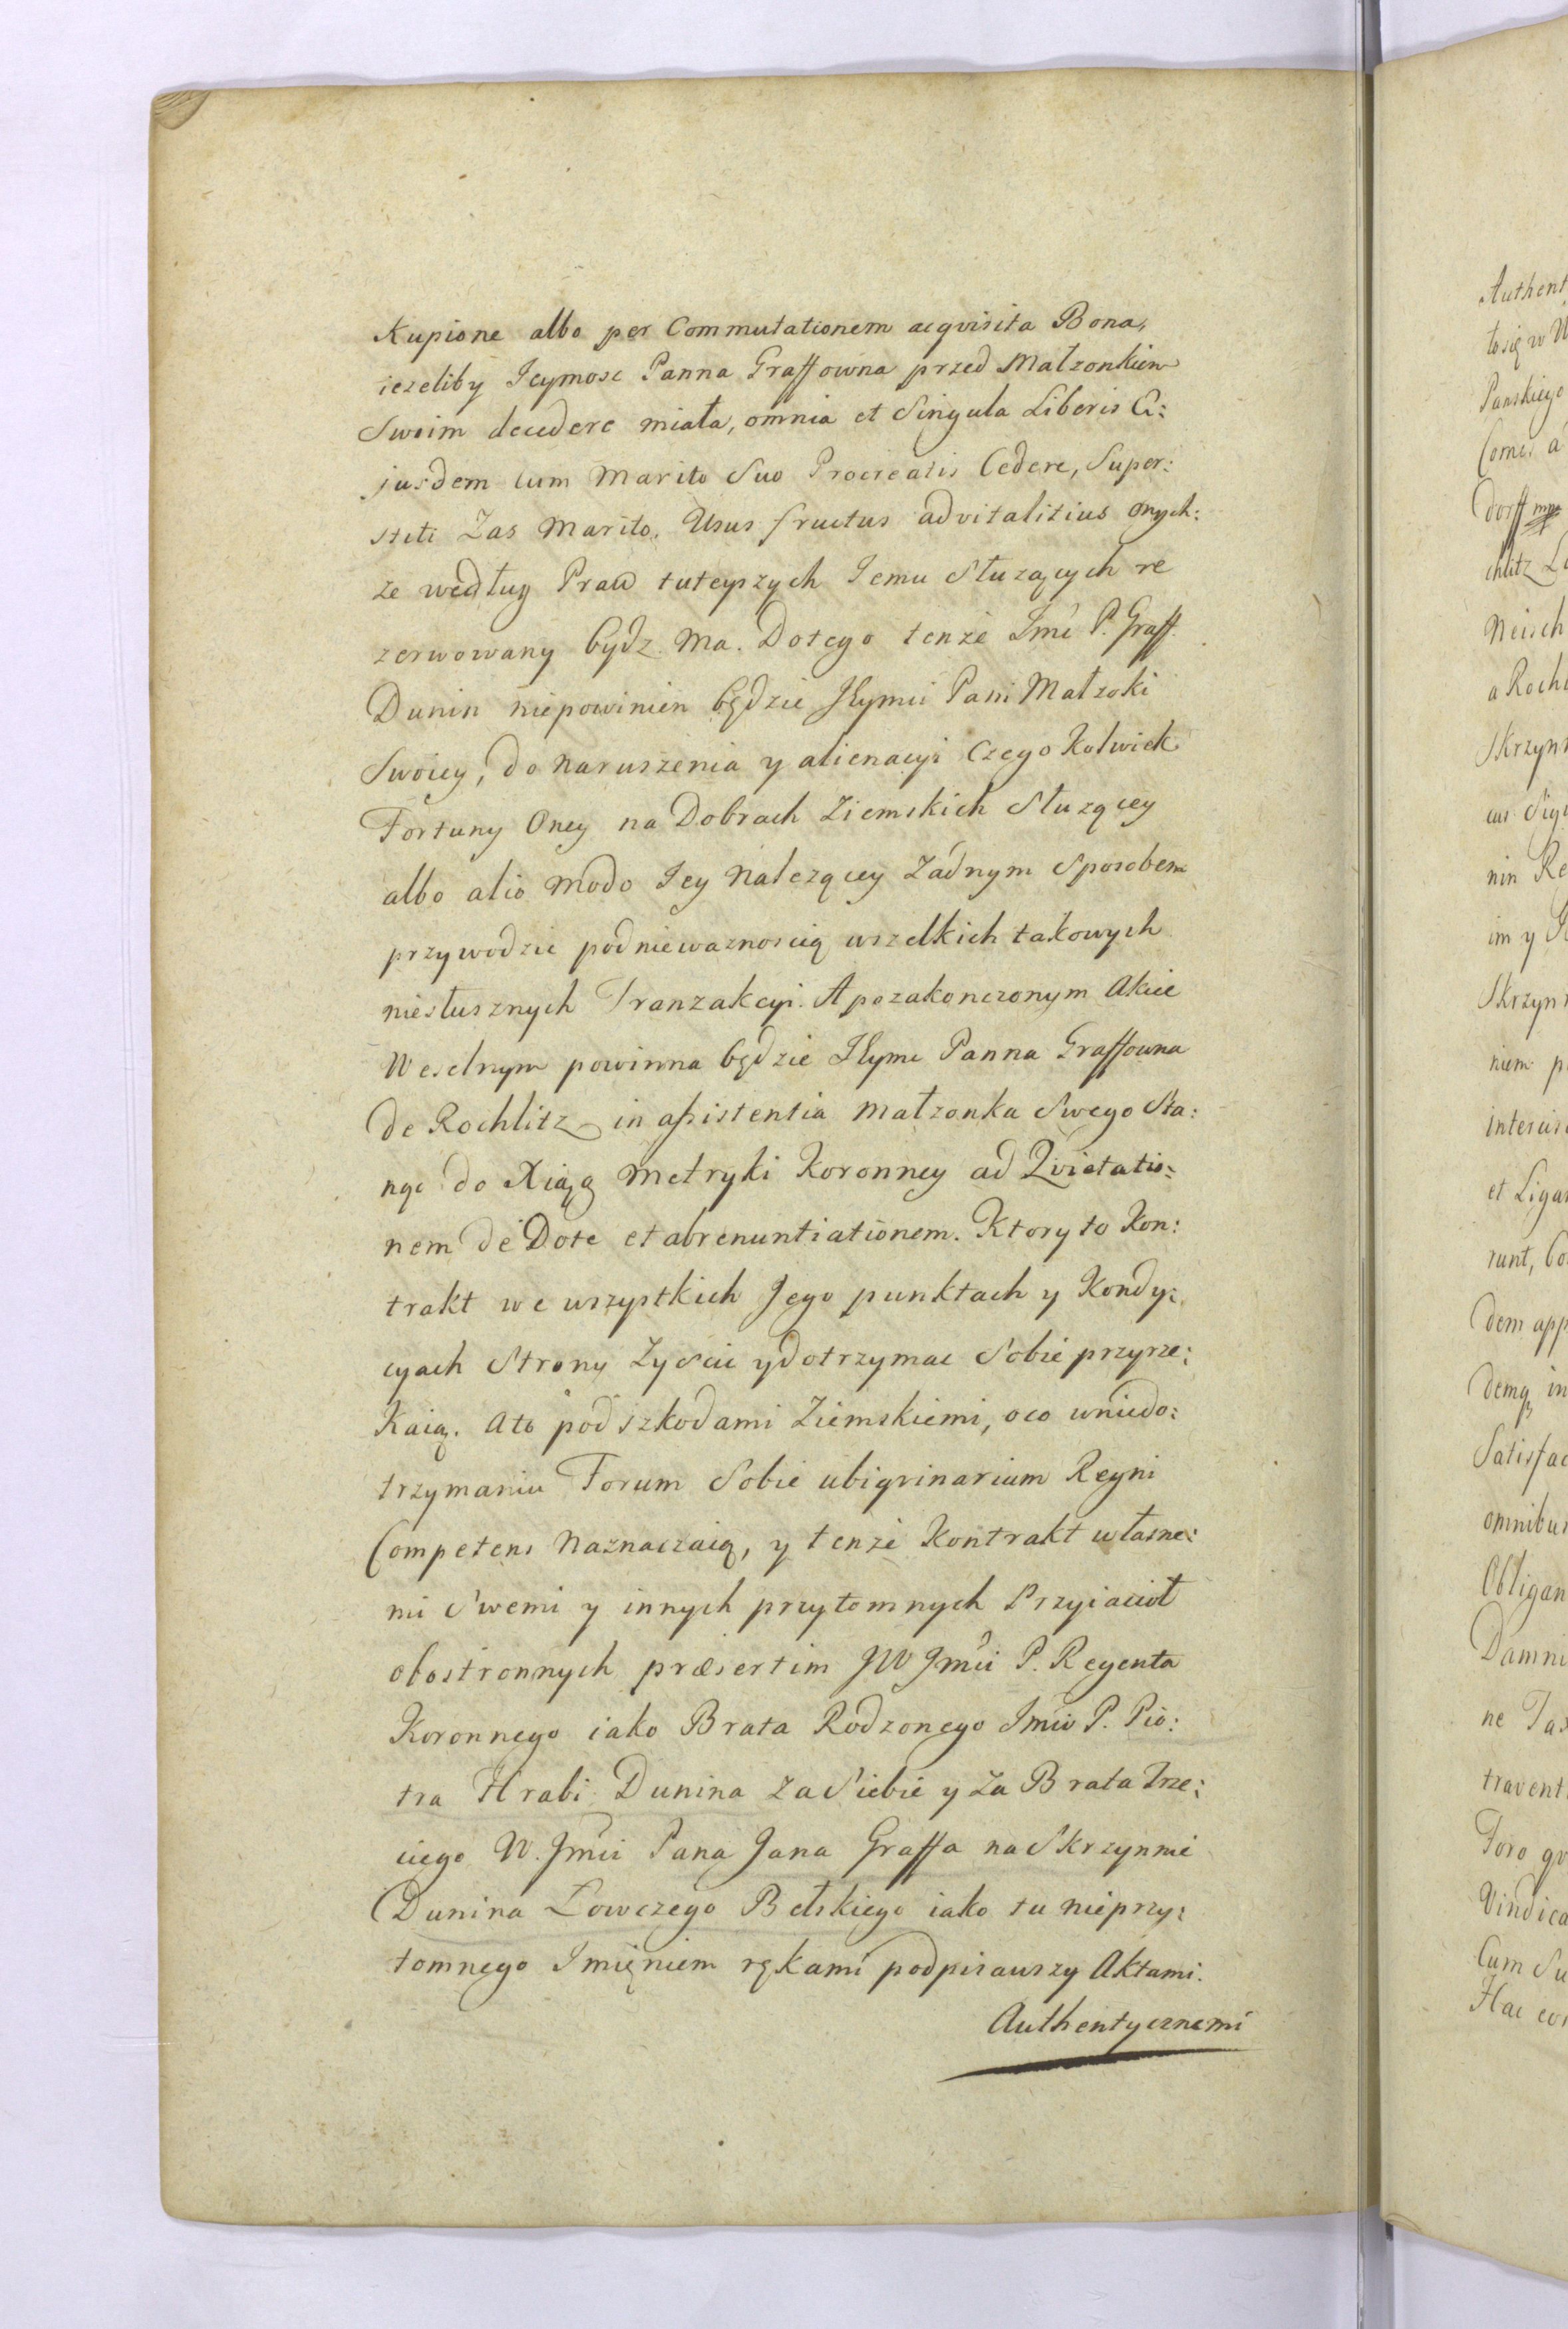 Kupione albo per Commutationem acqvisita Bona,
iezeliby Jeymosc Panna Graffowna przed Małzonkiem
Swoim decedere miała, omnia et Singula Liberis E:
jusdem cum Marito Suo Procreatis Cedere, Super:
stiti Zas Marito. Usus fructus advitalitius onych:
ze według Praw tuteyszych Jemu Słuzących re
zerwowany bydz Ma. Dotego tenze Jmć P. Graff
Dunin niepowinien będzie JEymci Pani Małzoki
Swoiey, do Naruszenia y alienacyi Czego Kolwiek
Fortuny Oney na Dobrach Ziemskich Słuzącey
albo alio Modo Jey Nalezącey Zadnym Sposobem
przywodzic podniewaznoscią wszelkich takowych
niesłusznych Tranzakcyi. A pozakonczonym Akcie
Weselnym powinna będzie JEymc Panna Graffowna
de Rochlitz in assistentia Małzonka Swego Sta:
nąc do Xiąg Metryki Koronney ad Qvietatio:
nem de Dote et abrenuntiationem. Ktory to Kon:
trakt we wszystkich Jego punktach y Kondy:
cyach Strony Zyscic ydotrzymac Sobie przyrze:
Kaią. Ato pod szkodami Ziemskiemi, oco wniedo:
trzymaniu Forum Sobie ubiqvinarium Regni
Competens Naznaczaią, y tenze Kontrakt własne:
mi Swemi y innych przytomnych Przyiacioł
obostronnych præsertim JW Jmci P. Regenta
Koronnego iako Brata Rodzonego Jmci P. Pio:
tra Hrabi Dunina Za Siebie y Za Brata Trze:
ciego W. Jmci Pana Jana Graffa na Skrzynnie
Dunina Łowczego Bełskiego iako tu nieprzy:
tomnego Imięniem rękami podpisawszy Aktami.
Authentycznemi
Authent
tosię w
Panskiego
Comes a
dorff mpp
chlitz
Neisch
a Roch
Skrzyn
cus Sig
nin Re
im y
Skrzyn
niem p
intercis
et Liga
runt,
dem app
demq in
Satisfac
omnibus
Obligan
Damni
ne Tas
travent
Foro qv
Vindica
Cum Su
Hac con